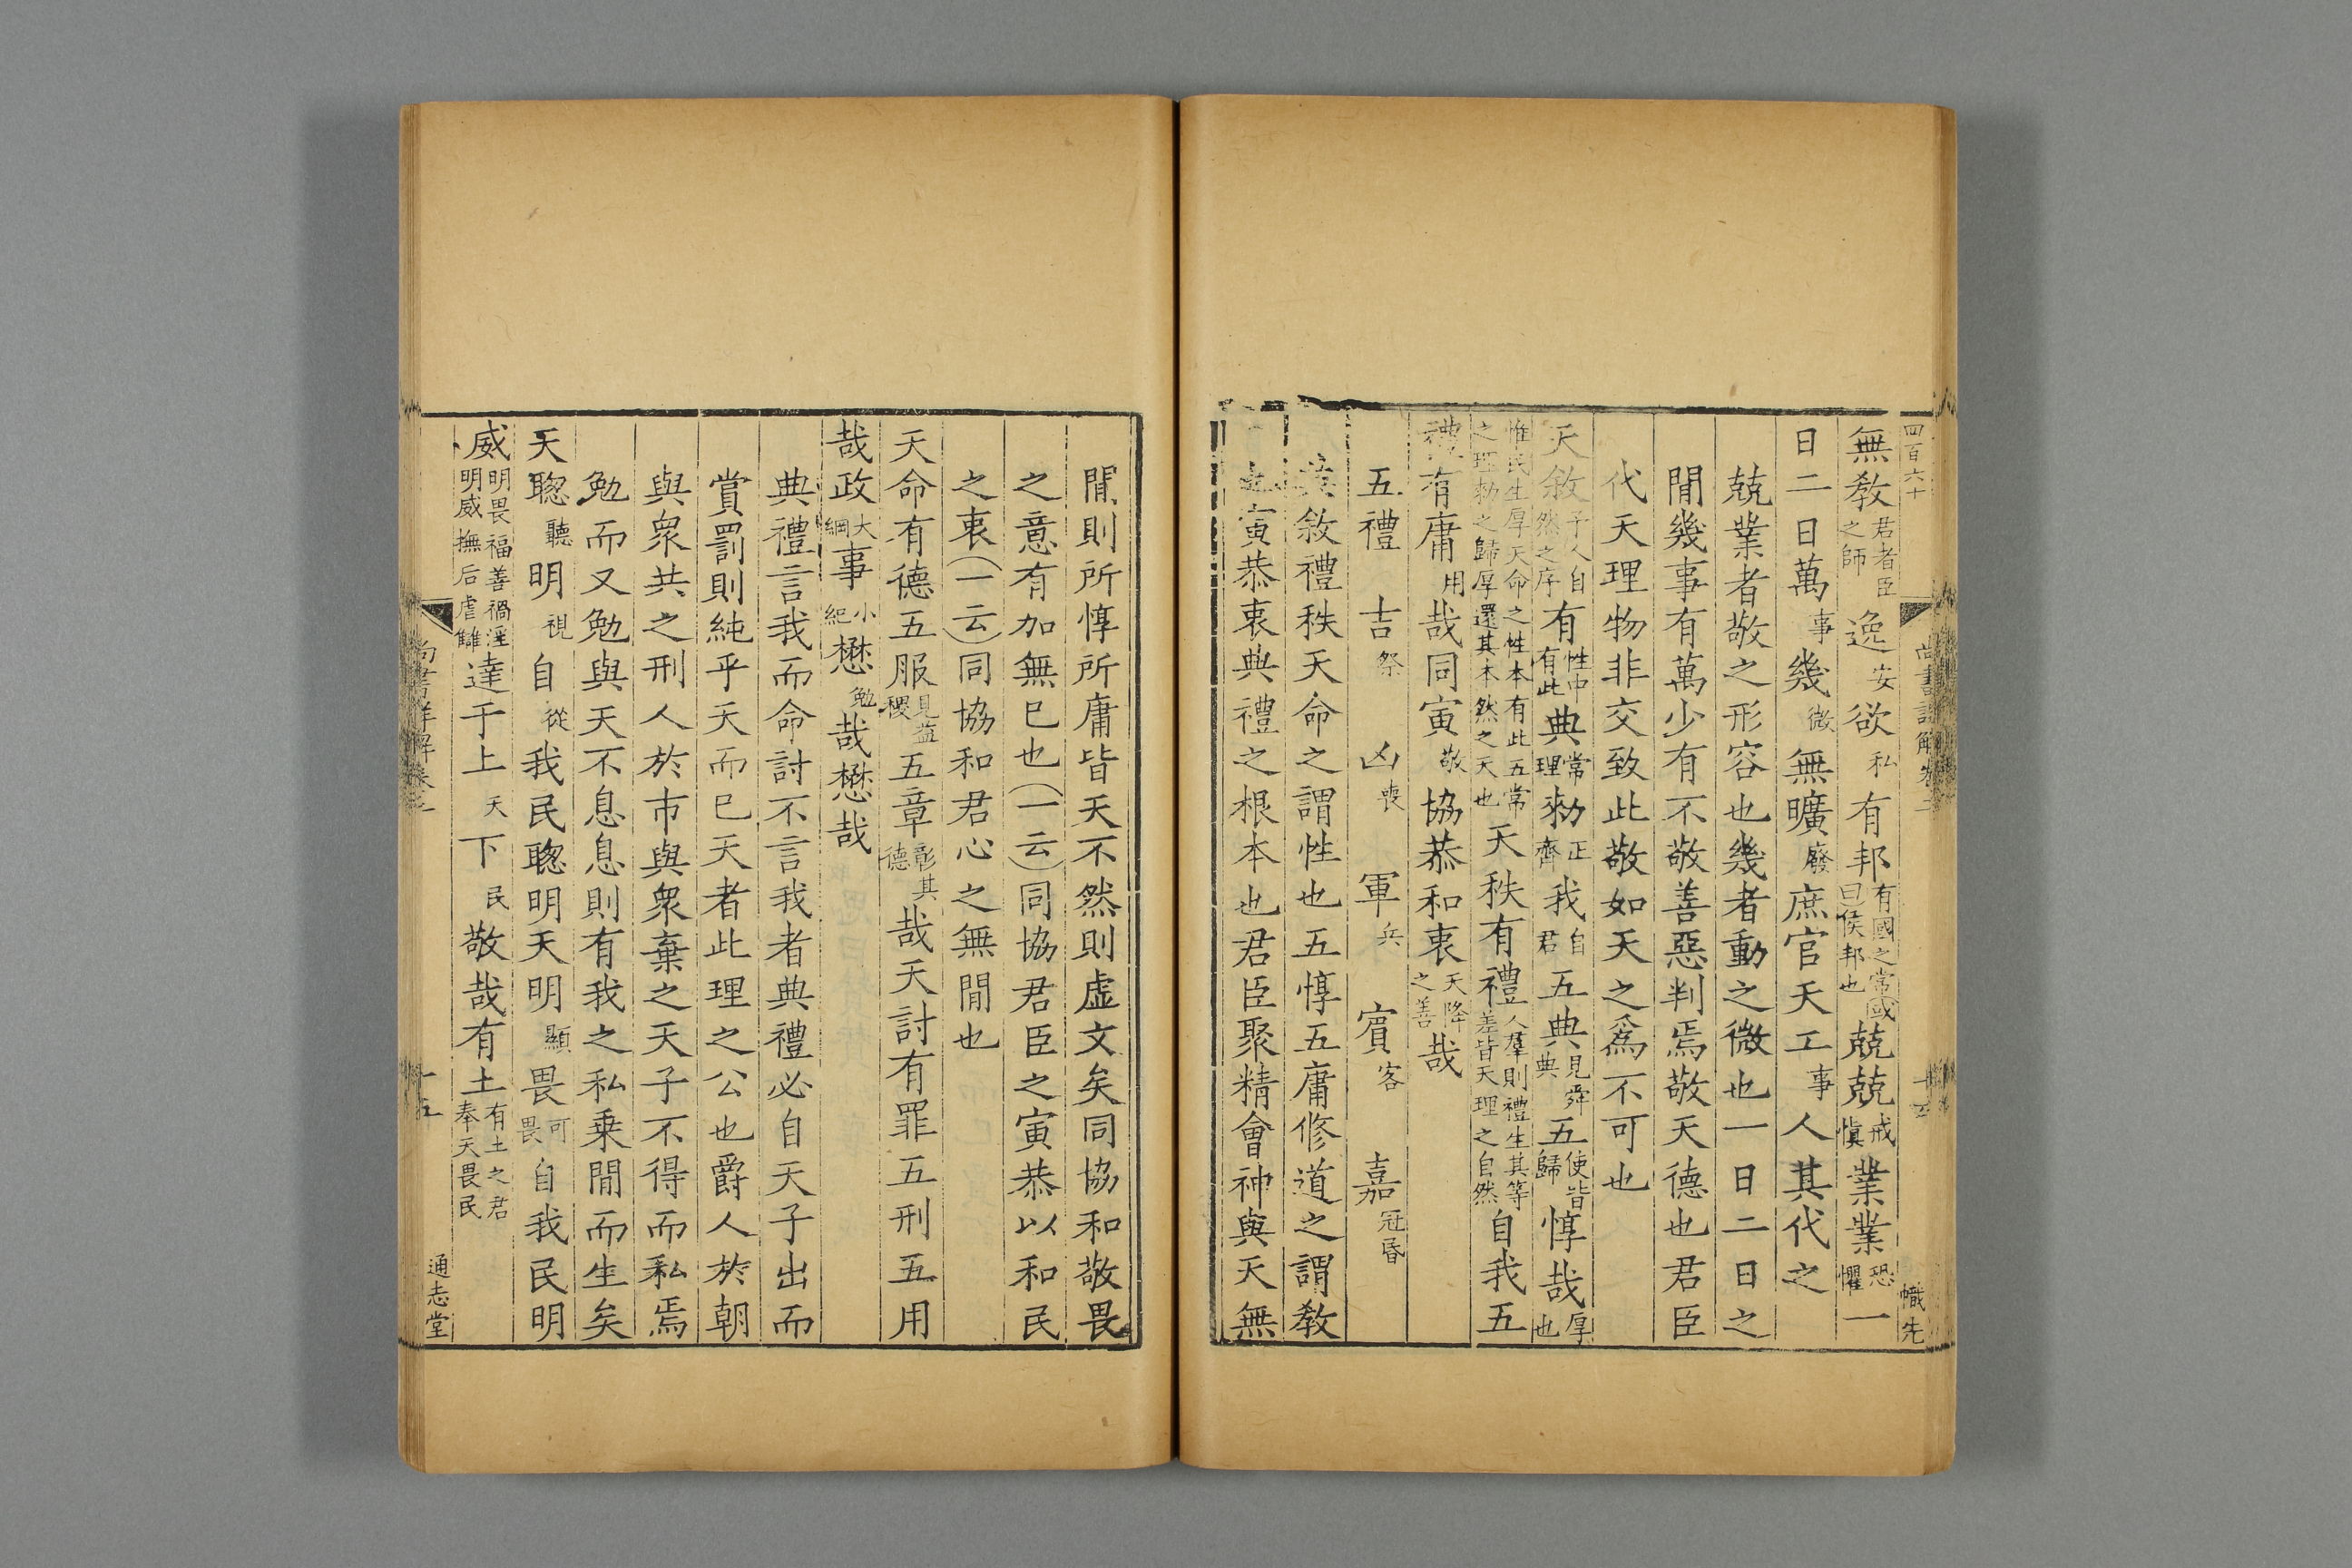 四百六十 尚書詳解卷二 幟先
無敎君者臣之師逸安欲私有邦有國之常或曰侯邦也兢兢戒愼業業恐懼一
日二日萬事幾微無曠廢庶官天工事人其代之
兢業者敬之形容也幾者動之微也一日二日之
閒幾事有萬少有不敬善惡判焉敬天德也君臣
代天理物非交致此敬如天之爲不可也
天敘予人自然之序有性中有此典常理勑正齊我自君五典見舜典五使皆歸惇哉厚也
惟民生厚天命之性本有此五常之理勑之歸厚還其本然之天也天秩有禮人羣則禮生其等差皆天理之自然自我五
禮有庸用哉同寅敬協恭和衷天降之善哉
五禮 吉祭 凶喪 軍兵 賓客 嘉冠昏
典敘禮秩天命之謂性也五惇五庸修道之謂敎
也寅恭衷典禮之根本也君臣聚精會神與天無
閒則所惇所庸皆天不然則虛文矣同協和敬畏
之意有加無已也(一云)同協君臣之寅恭以和民
之衷(一云)同協和君心之無閒也
天命有德五服見益稷五章彰其德哉天討有罪五刑五用
哉政大綱事小紀懋勉哉懋哉
典禮言我而命討不言我者典禮必自天子出而
賞罰則純乎天而已天者此理之公也爵人於朝
與衆共之刑人於市與衆棄之天子不得而私焉
勉而又勉與天不息息則有我之私乗閒而生矣
天聦聽明視自從我民聦明天明顯畏可畏自我民明
威明畏福善禍淫明威撫后虐讎達于上天下民敬哉有土有土之君奉天畏民
尚書詳解卷二 十五 通志堂